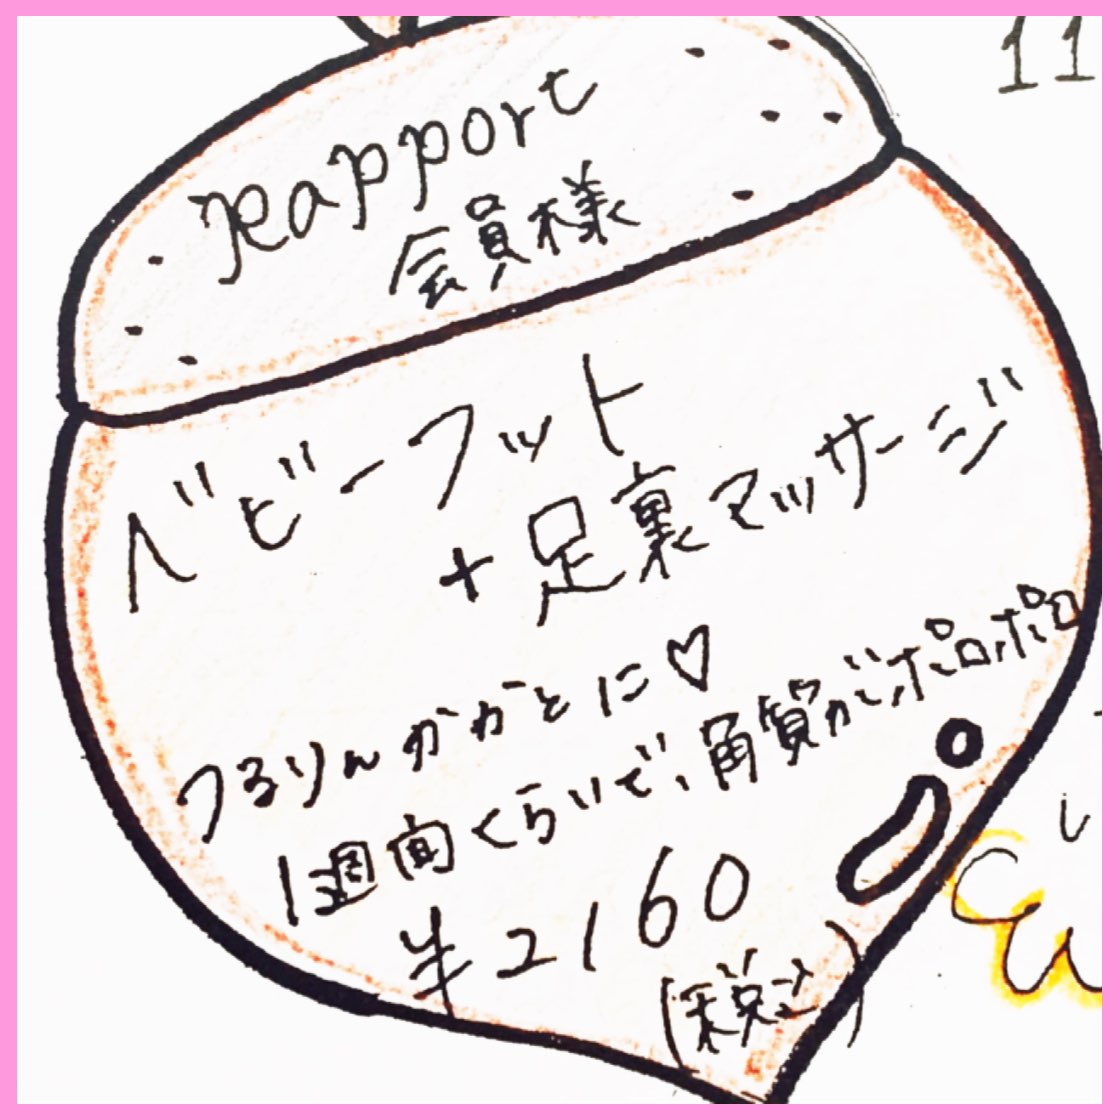 Rapport
会員様
ベビーフット
+足裏マッサージ
つるりんかかとに♡
1週間くらいで、角質がポロポロ
¥2160
(税込)
11